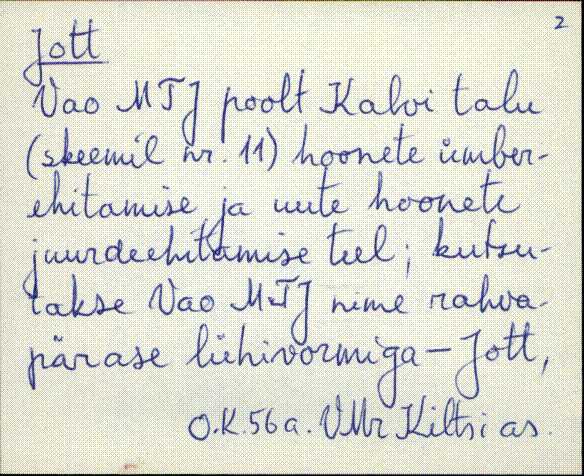 2
Jott
Vao MTJ poolt Kalvi talu
(skeemil nr. 11) hoonete ümber-
ehitamise ja uute hoonete
juurdeehitamise teel; kutsu-
takse Vao MTJ nime rahva-
pärase lühivormiga - Jott,
O.K. 56 a. VMr Kiltsi as.